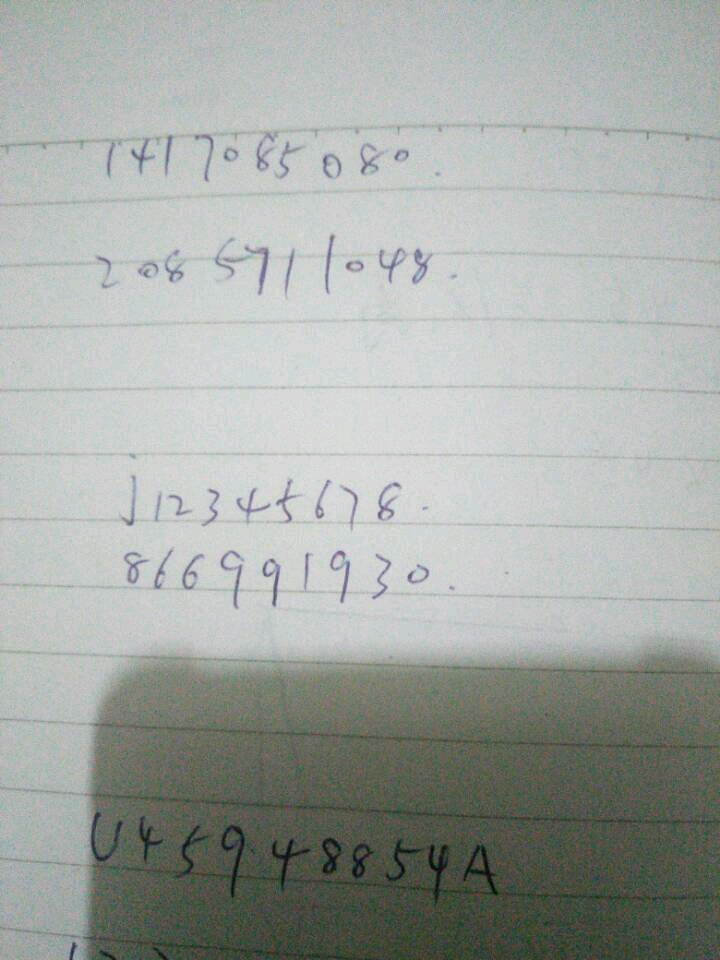 1417085080.
2085711048.
j12345678.
866991930.
U45948854A